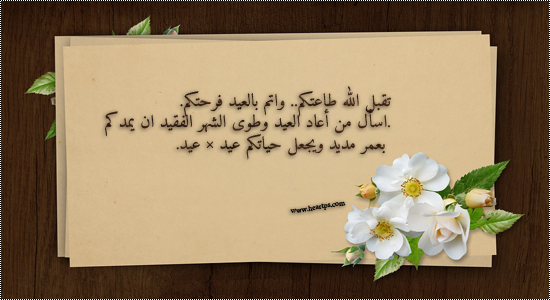 تقبل الله طاعتكم.. واتم بالعيد فرحتكم.
.اسأل من أعاد العيد وطوى الشهر الفقيد ان يمدكم
بعمر مديد ويجعل حياتكم عيد × عيد.
www.heartps.com